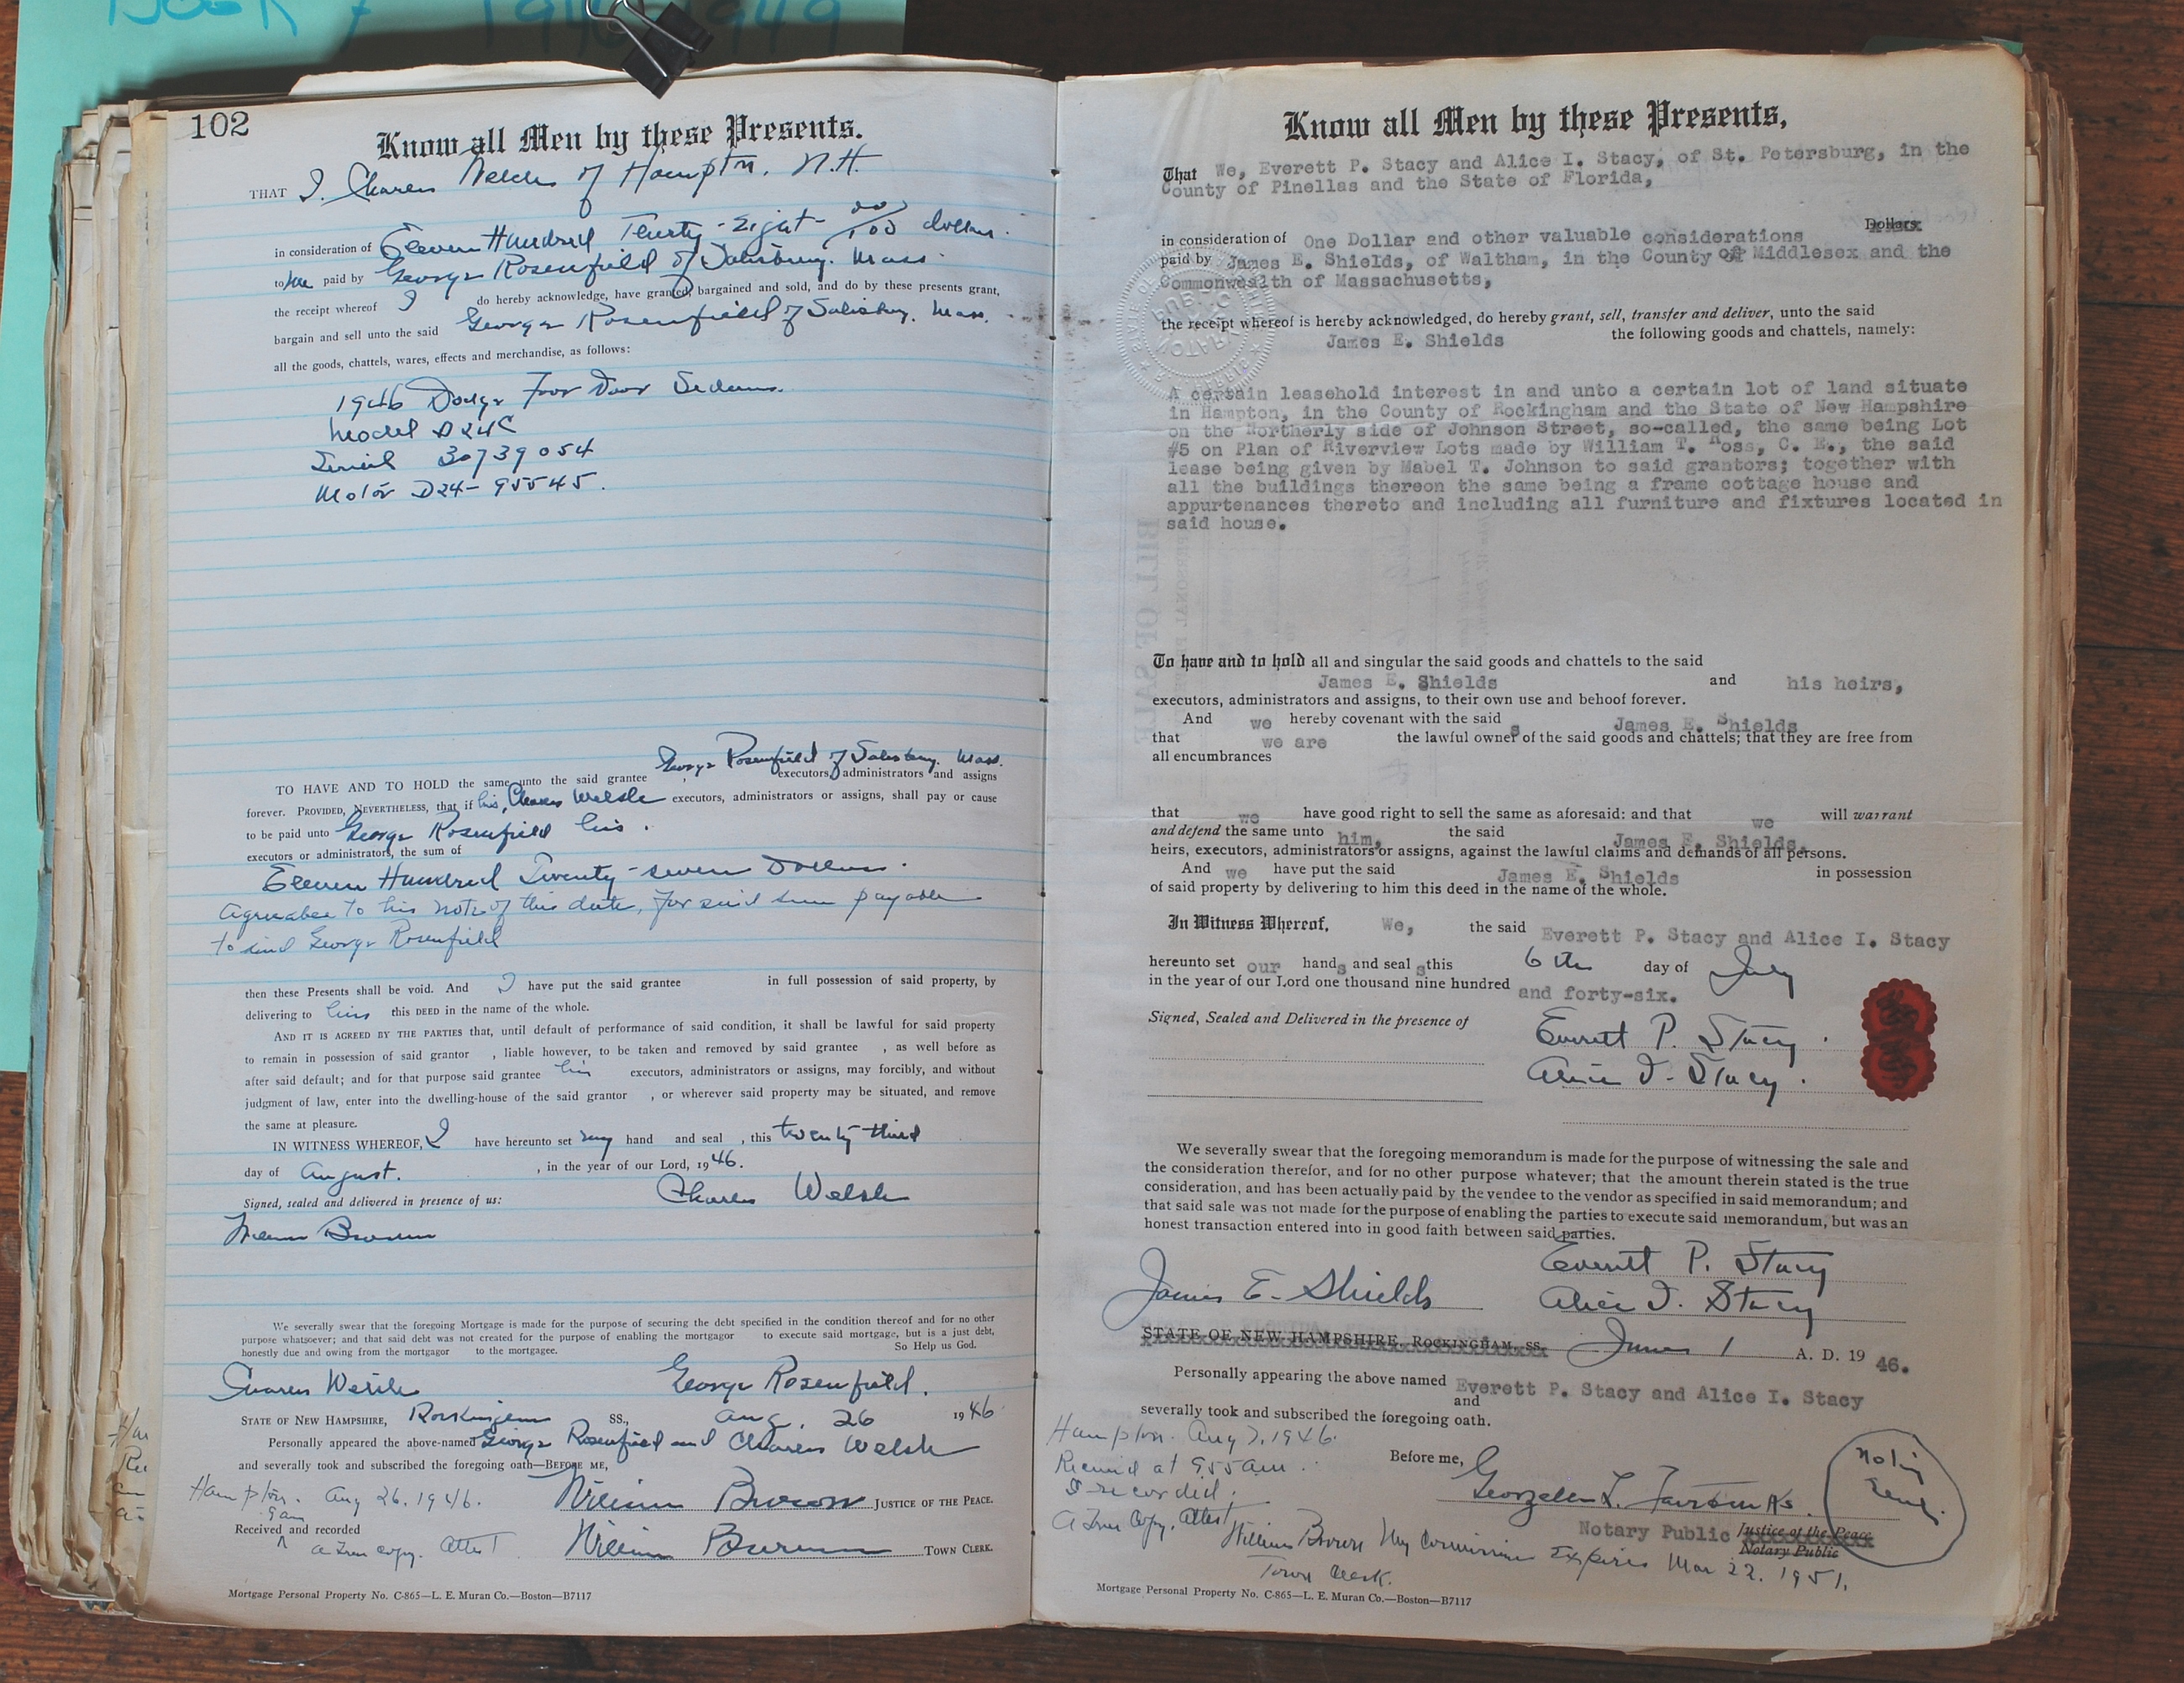 Book 7 1946-1949
102
Know all Men by these Presents.
THAT I, Charles Welch of Hampton, N.H.
in consideration of Eleven Hundred Thirty-Eight- 00/100 dollars.
to me paid by George Rosenfield of Salisbury. Mass.
the receipt whereof I do hereby acknowledge, have granted, bargained and sold, and do by these presents grant,
bargain and sell unto the said George Rosenfield of Salisbury. Mass.
all the goods, chattels, wares, effects and merchandise, as follows:
1946 Dodge Four Door Sedan.
Model D24C
Serial 30739054
Motor D24-95545.
TO HAVE AND TO HOLD the same unto the said grantee George Rosenfield of Salisbury. Mass.
executors, administrators and assigns
forever. PROVIDED, NEVERTHELESS, that if his, Charles Welsh executors, administrators or assigns, shall pay or cause
to be paid unto George Rosenfield his.
executors or administrators, the sum of
Eleven Hundred Twenty-seven Dollars.
agreeable to his note of this date, for said sum payable
to said George Rosenfield
then these Presents shall be void. And I have put the said grantee in full possession of said property, by
delivering to him this DEED in the name of the whole.
AND IT IS AGREED BY THE PARTIES that, until default of performance of said condition, it shall be lawful for said property
to remain in possession of said grantor , liable however, to be taken and removed by said grantee , as well before as
after said default; and for that purpose said grantee his executors, administrators or assigns, may forcibly, and without
judgment of law, enter into the dwelling-house of the said grantor , or wherever said property may be situated, and remove
the same at pleasure.
IN WITNESS WHEREOF, I have hereunto set my hand and seal , this twenty third
day of August. , in the year of our Lord, 1946.
Signed, sealed and delivered in presence of us: Charles Welsh
William Brown
We severally swear that the foregoing Mortgage is made for the purpose of securing the debt specified in the condition thereof and for no other
purpose whatsoever; and that said debt was not created for the purpose of enabling the mortgagor to execute said mortgage, but is a just debt,
honestly due and owing from the mortgagor to the mortgagee. So Help us God.
Charles Welsh George Rosenfield.
STATE OF NEW HAMPSHIRE, Rockingham SS., Aug. 26 1946
Personally appeared the above-named George Rosenfield and Charles Welsh
and severally took and subscribed the foregoing oath—BEFORE ME,
Hampton. Aug 26. 1946. William Brown JUSTICE OF THE PEACE.
9am
Received and recorded
a True copy. Attest William Brown TOWN CLERK.
Mortgage Personal Property No. C-865—L. E. Muran Co.—Boston—B7117
Know all Men by these Presents,
That We, Everett P. Stacy and Alice I. Stacy, of St. Petersburg, in the
County of Pinellas and the State of Florida,
Dollars
in consideration of One Dollar and other valuable considerations
paid by James E. Shields, of Waltham, in the County of Middlesex and the
Commonwealth of Massachusetts,
the receipt whereof is hereby acknowledged, do hereby grant, sell, transfer and deliver, unto the said
James E. Shields the following goods and chattels, namely:
A certain leasehold interest in and unto a certain lot of land situate
in Hampton, in the County of Rockingham and the State of New Hampshire
on the Northerly side of Johnson Street, so-called, the same being Lot
#5 on Plan of Riverview Lots made by William T. Ross, C. E., the said
lease being given by Mabel T. Johnson to said grantors; together with
all the buildings thereon the same being a frame cottage house and
appurtenances thereto and including all furniture and fixtures located in
said house.
To have and to hold all and singular the said goods and chattels to the said
James E. Shields and his heirs,
executors, administrators and assigns, to their own use and behoof forever.
And we hereby covenant with the said James E. Shields
that we are the lawful owners of the said goods and chattels; that they are free from
all encumbrances
that we have good right to sell the same as aforesaid: and that we will warrant
and defend the same unto him, the said James E. Shields,
heirs, executors, administrators or assigns, against the lawful claims and demands of all persons.
And we have put the said James E. Shields in possession
of said property by delivering to him this deed in the name of the whole.
In Witness Whereof, We, the said Everett P. Stacy and Alice I. Stacy
hereunto set our hands and seals this 6th day of July
in the year of our Lord one thousand nine hundred and forty-six.
Signed, Sealed and Delivered in the presence of
Everett P. Stacy.
Alice I. Stacy.
We severally swear that the foregoing memorandum is made for the purpose of witnessing the sale and
the consideration therefor, and for no other purpose whatever; that the amount therein stated is the true
consideration, and has been actually paid by the vendee to the vendor as specified in said memorandum; and
that said sale was not made for the purpose of enabling the parties to execute said memorandum, but was an
honest transaction entered into in good faith between said parties.
Everett P. Stacy
James E. Shields Alice I. Stacy
STATE OF NEW HAMPSHIRE, ROCKINGHAM, SS. June 1 A. D. 1946.
Personally appearing the above named Everett P. Stacy and Alice I. Stacy
and
severally took and subscribed the foregoing oath.
Hampton. Aug 7, 1946.
Received at 955 am. Before me,
& recorded.
A True Copy, Attest
Notary Public Justice of the Peace
Notary Public
Notary Seal.
William Brown My Commission Expires Mar 22. 1951.
Town Clerk.
Mortgage Personal Property No. C-865—L. E. Muran Co.—Boston—B7117